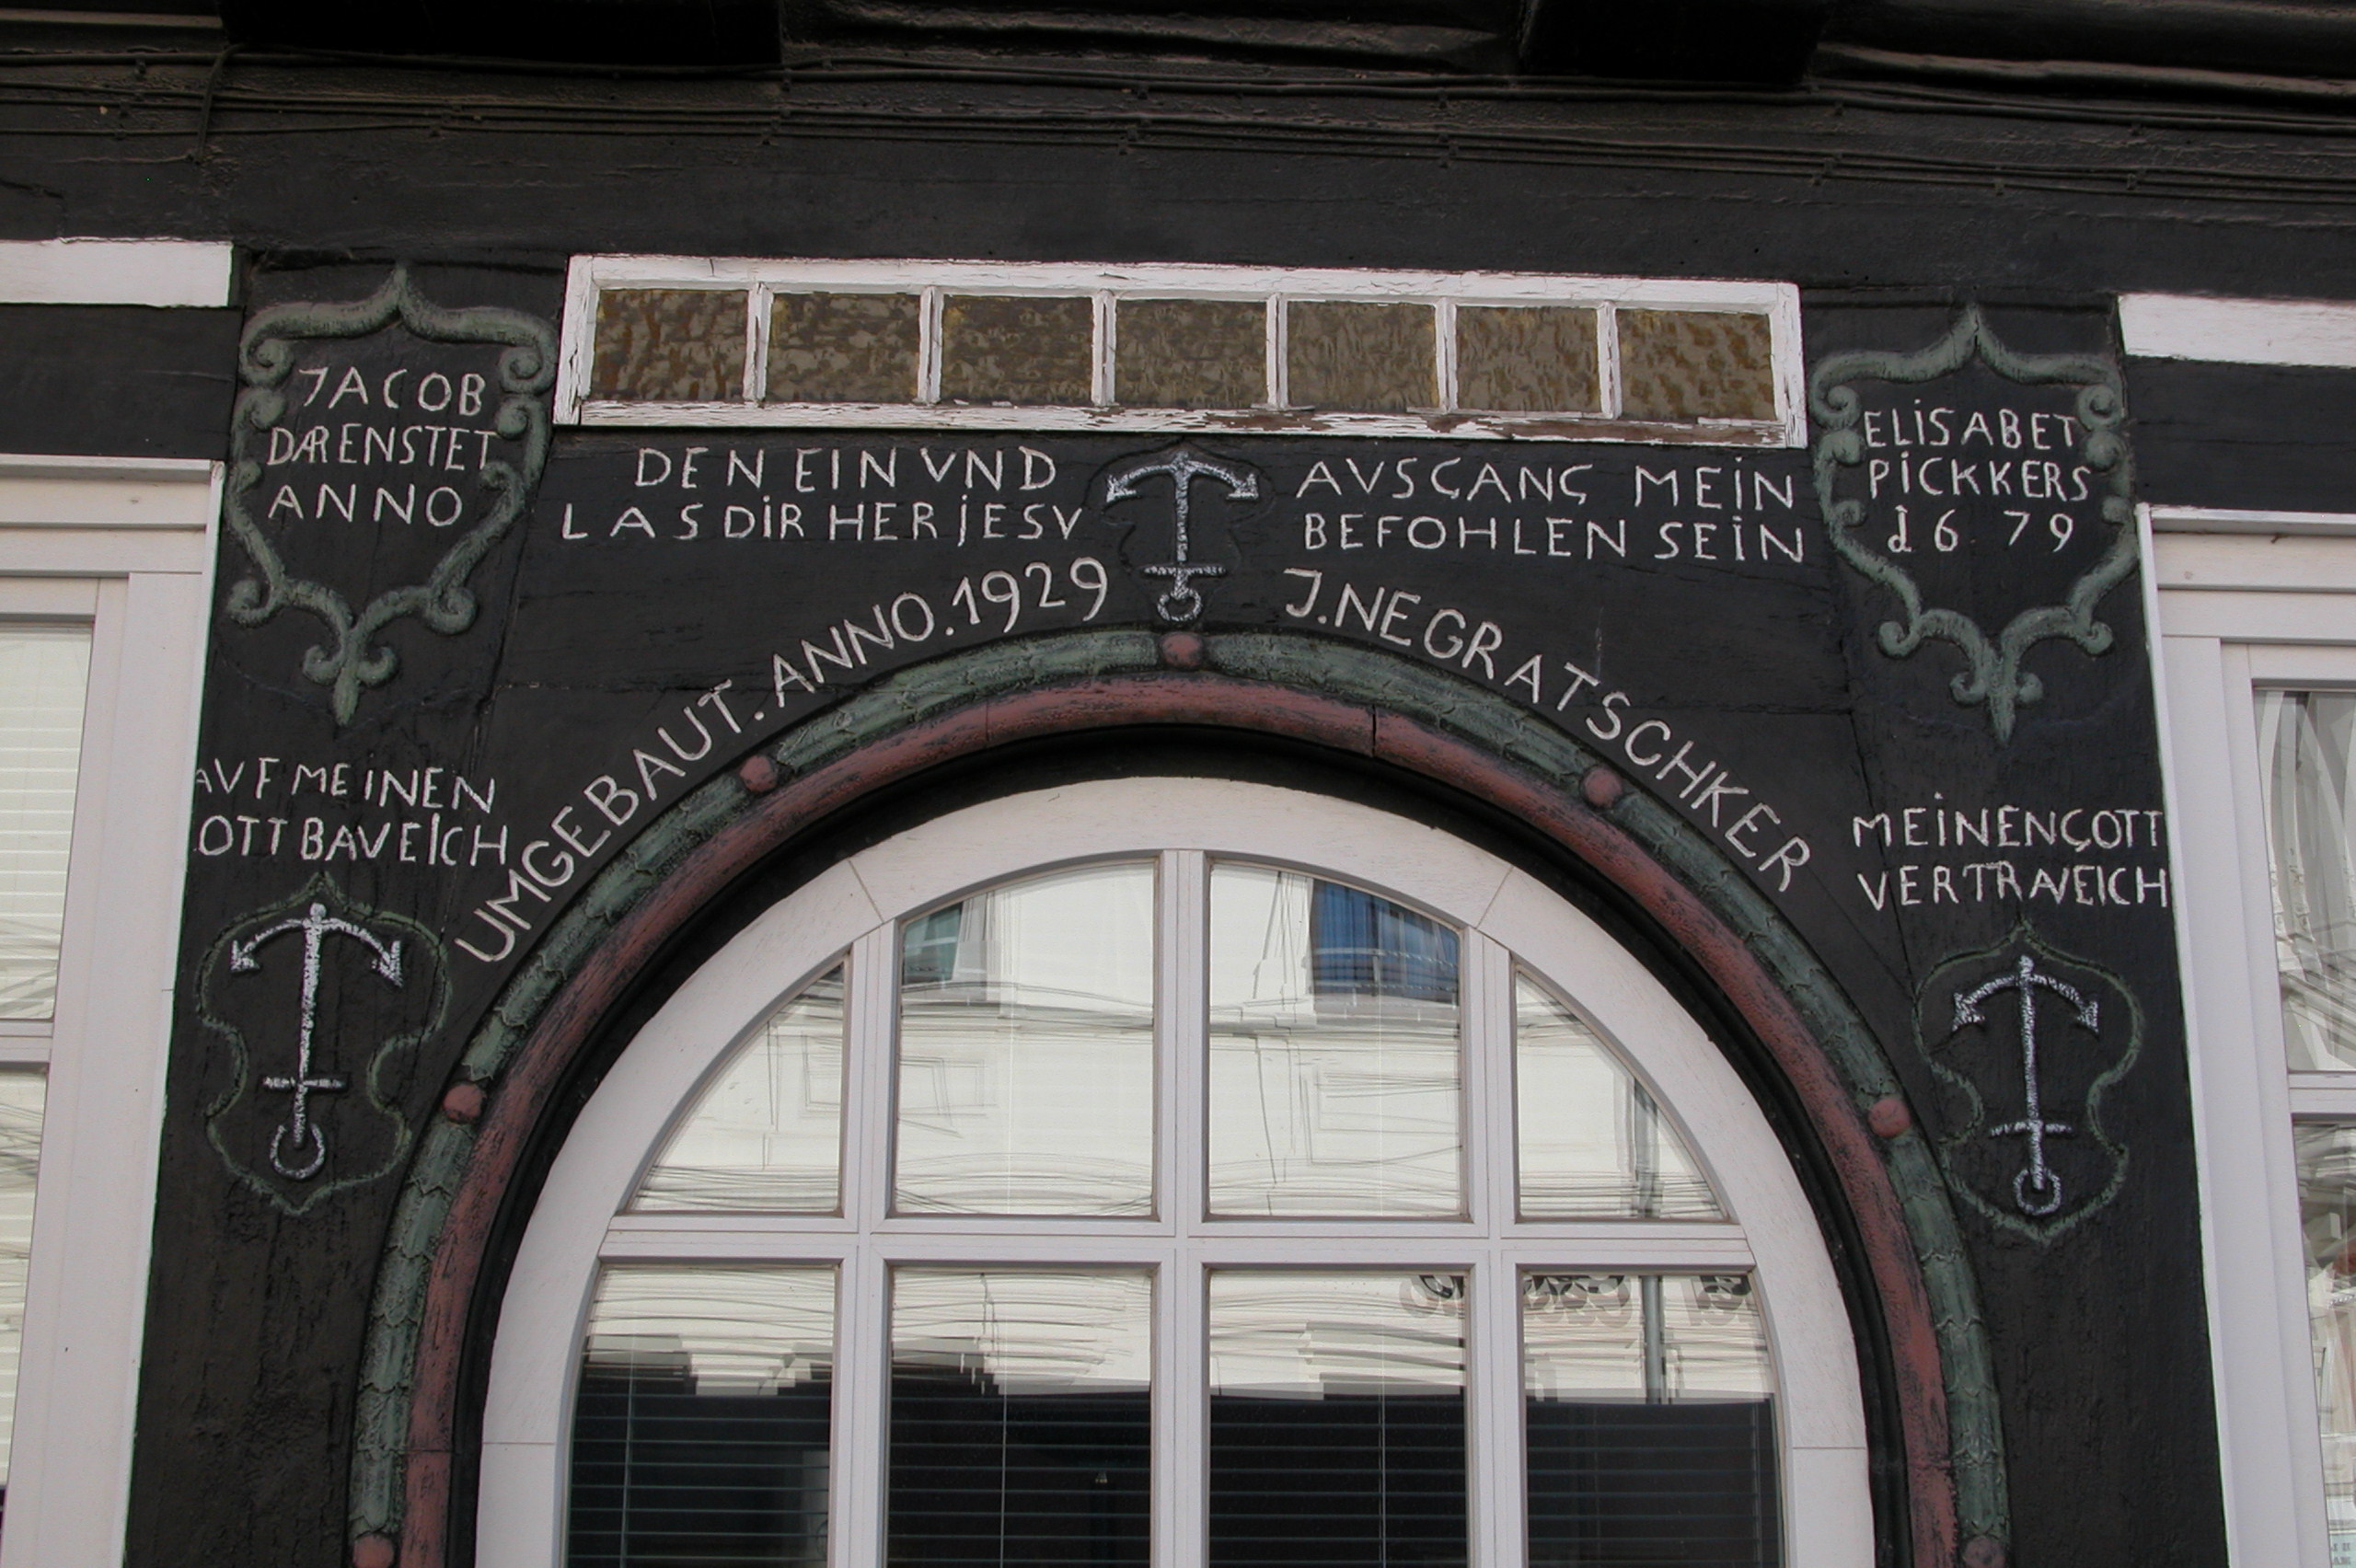 JACOB
DARENSTET
ANNO
DEN EIN VND
LAS DIR HER JESV
AVSGANG MEIN
BEFOHLEN SEIN
ELISABET
PICKKERS
1679
UMGEBAUT. ANNO. 1929
J. NEGRATSCHKER
AVF MEINEN
OTT BAVE ICH
MEINEN GOTT
VERTRAVE ICH